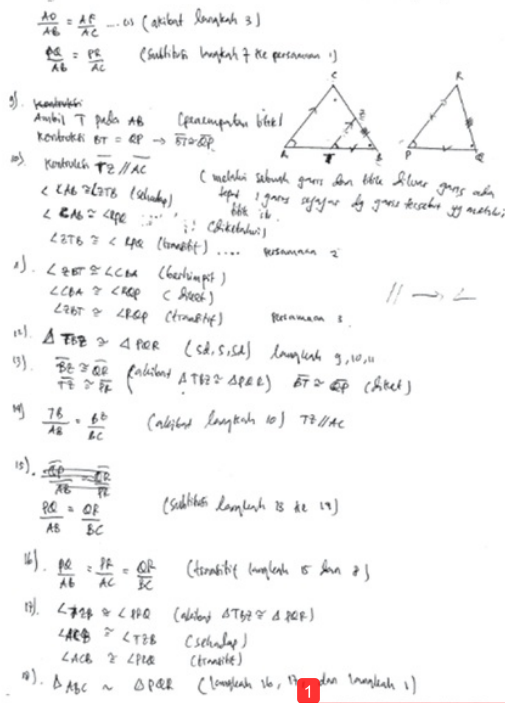 AD/AB = AF/AC ... (1) (akibat langkah 3)
PQ/AB = PR/AC (Subtitusi langkah 7 ke persamaan 1)
C R
9). Kontruksi
Ambil T pada AB (penempatan titik)
Kontruksi BT = QP → BT≅QP
Z
A T B P Q
10). Kontruksi TZ // AC
(melalui sebuah garis dan titik diluar garis ada
tepat 1 garis sejajar dg garis tersebut yg melalui
titik itu
∠CAB ≅ ∠ZTB (sehadap)
∠CAB ≅ ∠RPQ (diketahui)
∠ZTB ≅ ∠RPQ (transitif) .... persamaan 2
11). ∠ZBT ≅ ∠CBA (berhimpit)
∠CBA ≅ ∠RQP (diket)
∠ZBT ≅ ∠RQP (transitif) persamaan 3
// → ∠
12). Δ TBZ ≅ Δ PQR (sd, s, sd) langkah 9, 10, 11
13). BZ ≅ QR
TZ ≅ PR (akibat ΔTBZ ≅ ΔPQR) BT ≅ QP (diket)
14) TB/AB = BZ/BC (akibat langkah 10) TZ//AC
15). QP/AB = QR
PQ/AB = QR/BC (Subtitusi langkah 13 ke 14)
16). PQ/AB = PR/AC = QR/BC (transitif langkah 15 dan 8)
17). ∠TZB ≅ ∠PRQ (akibat ΔTBZ ≅ ΔPQR)
∠ACB ≅ ∠TZB (sehadap)
∠ACB ≅ ∠PRQ (transitif)
18). Δ ABC ~ Δ PQR (langkah 16, 17, dan langkah 1)
1